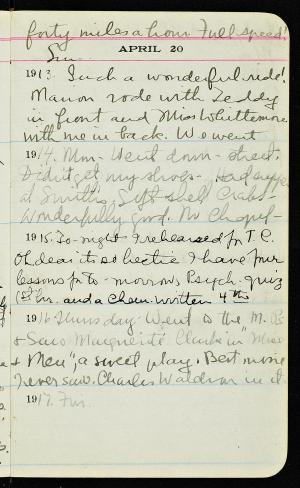 forty miles an hour Full speed!
APRIL 20
Sun
1913. Such a wonderful ride!
Marion rode with Teddy
in front and Miss Whittemore
with me in back. We went
1914. Mon- Went down-street.
Didn't get my shoes- Had supper
at Smith's, Soft shell Crabs-
Wonderfully good. No Chapel-
1915. To-night I rehearsed for T. C.
Oh dear its so hectic I have four
lessons for to-morrow, Psych. quiz
(1st hr. and a Chem. written 4th
1916 Thursday- Went to the M. P.
+ Saw Marguerite Clark in "Mice
+ Men", a sweet play. Best movie
I ever saw. Charles Waldron in it.
1917. Fri.